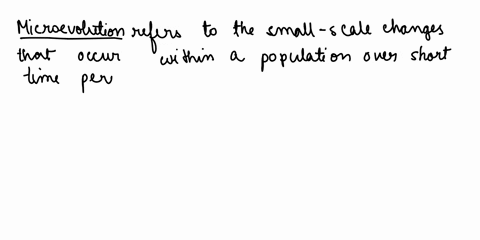 Microevolution refers to the small-scale changes
that occur within a population over short
time per